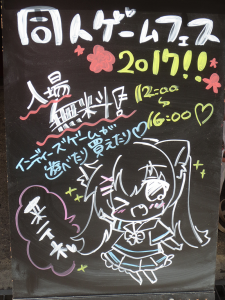 同人ゲームフェス
2017!!
入場
無料!?
12:00
〜
16:00♡
インディーズゲームが
遊べたり買えたり♡
来てネ